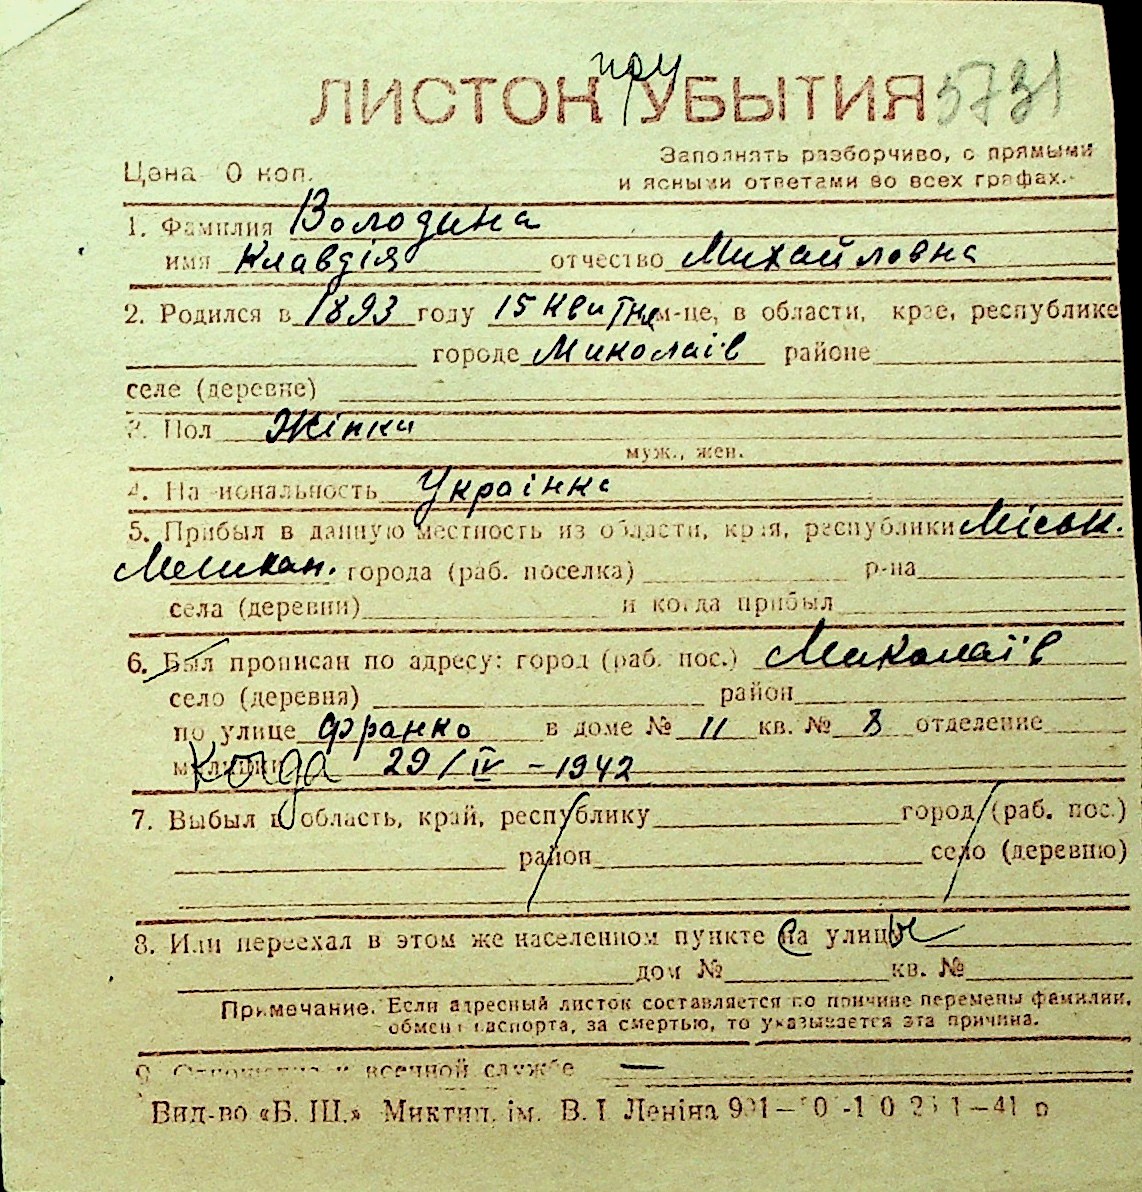 ЛИСТОК при УБЫТИЯ 5731
Цена 0 коп. Заполнять разборчиво, с прямыми
и ясными ответами во всех графах.
1. Фамилия Володина
имя Клавдія отчество Михайловна
2. Родился в 1893 году 15 квітня м-це, в области, крае, республике
городе Миколаїв районе
селе (деревне)
3. Пол Жінка
муж., жен.
4. Национальность Українка
5. Прибыл в данную местность из области, края, республики Міськ.
города (раб. поселка) р-на
села (деревни) и когда прибыл
6. Был прописан по адресу: город (раб. пос.) Миколаїв
село (деревня) район
по улице Франко в доме № 11 кв. № 8 отделение
милиции Когда 29/IV - 1942
7. Выбыл в область, край, республику город (раб. пос.)
район село (деревню)
8. Или переехал в этом же населенном пункте на улицу
дом № кв. №
Примечание. Если адресный листок составляется по причине перемены фамилии,
обмена паспорта, за смертью, то указывается эта причина.
9. Отношение к военной службе —
Вид-во «Б. Ш.» Миктип. ім. В. І Леніна